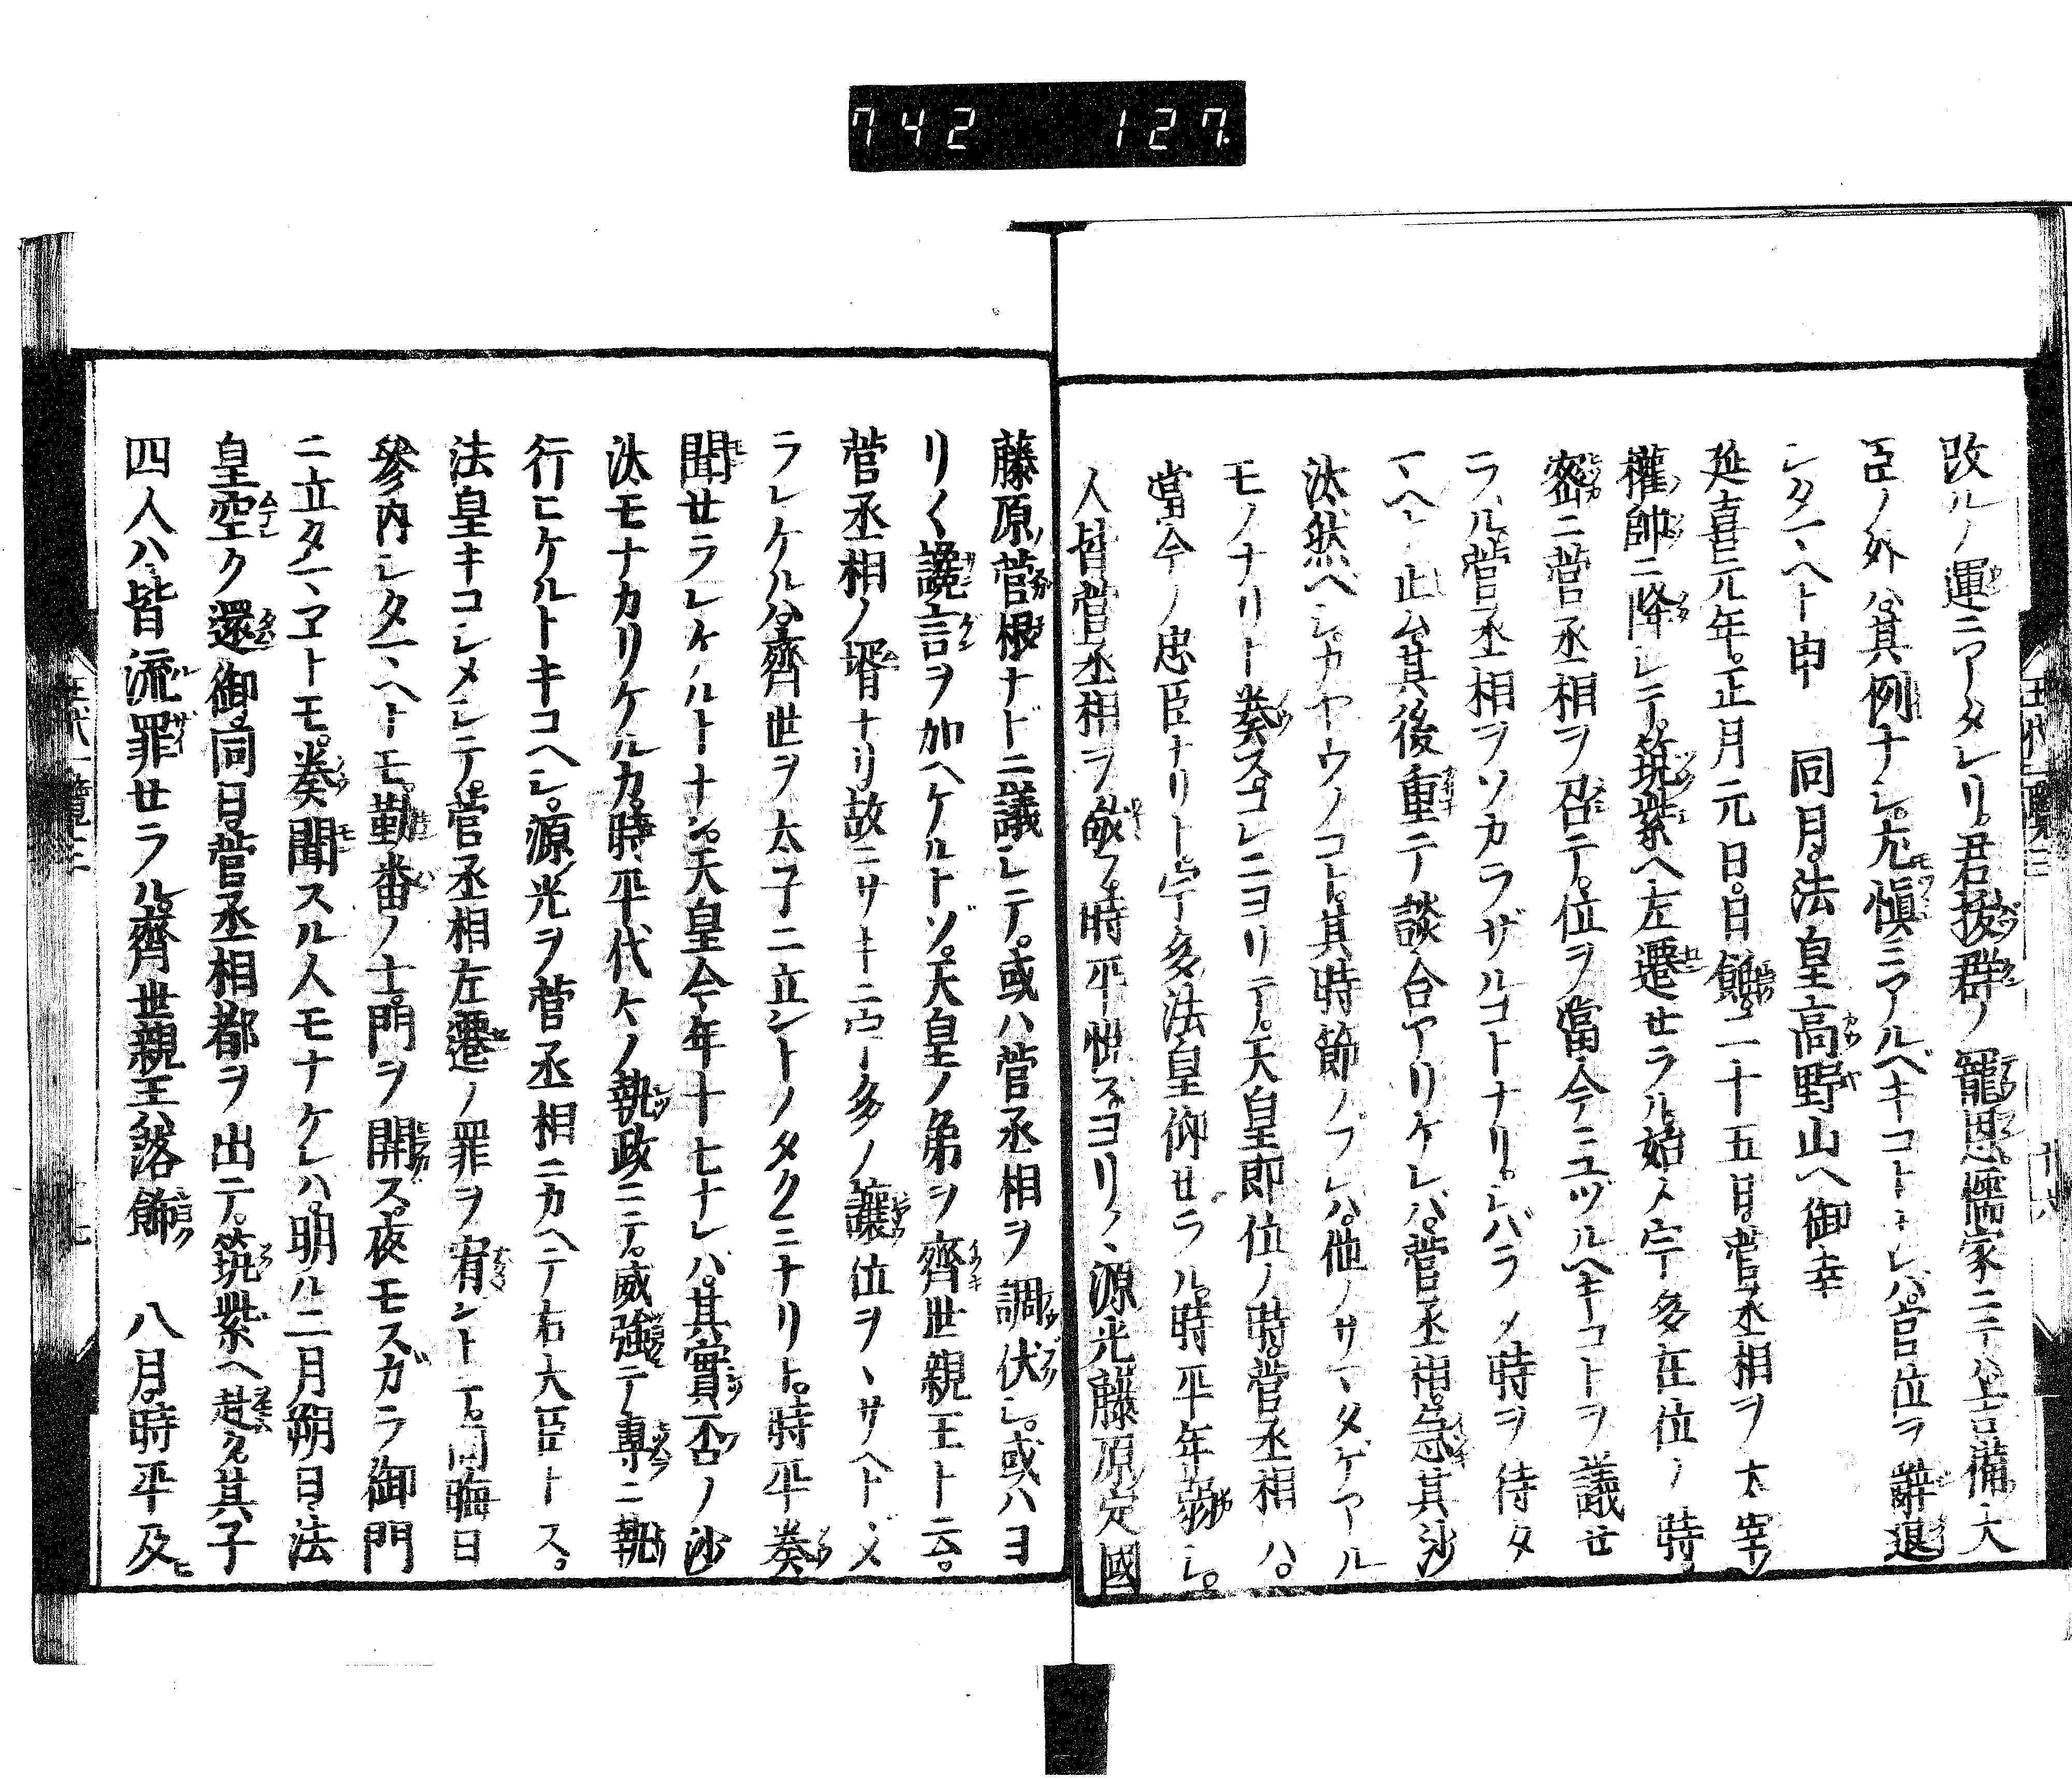 742 127
改ルノ運ニアタレリ。君拔群ノ寵恩。儒家ニテハ吉備ノ大
臣ノ外ハ。其例ナシ。尤愼ミアルベキコトナレバ。官位ヲ辭退
シタマヘト申 同月。法皇高野山ヘ御幸
延喜元年。正月元日。日蝕。二十五日。菅丞相ヲ太宰ノ
權帥ニ降シテ。筑紫ヘ左遷セラル。始メ宇多在位ノ時。
密ニ菅丞相ヲ召テ。位ヲ當今ニユヅルヘキコトヲ議セ
ラル。菅丞相ヲソカラザルコトナリ。シバラク時ヲ待タ
マヘト止ム。其後重テ談合アリケレバ。菅丞相。急其沙
汰然ベシ。カヤウノコト。其時節ノブレハ。他ノサマタゲアル
モノナリト奏ス。コレニヨリテ。天皇即位ノ時。菅丞相ハ。
當今ノ忠臣ナリト宇多法皇仰セラル。時平年弱シ。
人皆菅丞相ヲ敬フ。時平悦ズヨリ〱源光藤原定國
藤原ノ菅根ナドニ議シテ。或ハ菅丞相ヲ調伏シ。或ハヨ
リ〱讒言ヲ加ヘケルトゾ。天皇ノ弟ヲ齊世親王ト云。
菅丞相ノ壻ナリ故ニサキニ宇多ノ讓位ヲヽサヘトヾメ
ラレケルハ。齊世ヲ太子ニ立ントノタクミナリト。時平奏
聞セラレケルトナン。天皇今年十七ナレハ。其實否ノ沙
汰モナカリケルカ。時平代々ノ執政ニテ。威強テ專ニ執
行ヒケルトキコヘシ。源ノ光ヲ菅丞相ニカヘテ右大臣トス。
法皇キコシメシテ。菅丞相左遷ノ罪ヲ宥ントテ。同晦日
參内シタマヘトモ。勤番ノ士。門ヲ開ス。夜モスガラ御門
ニ立タマヱトモ。奏聞スル人モナケレハ。明ル二月朔日ニ法
皇空ク還御。同日。菅丞相都ヲ出テ。筑紫ヘ赴ク。其子
四人ハ皆流罪セラル。齊世親王ハ落飾 八月。時平及
王代一覽三